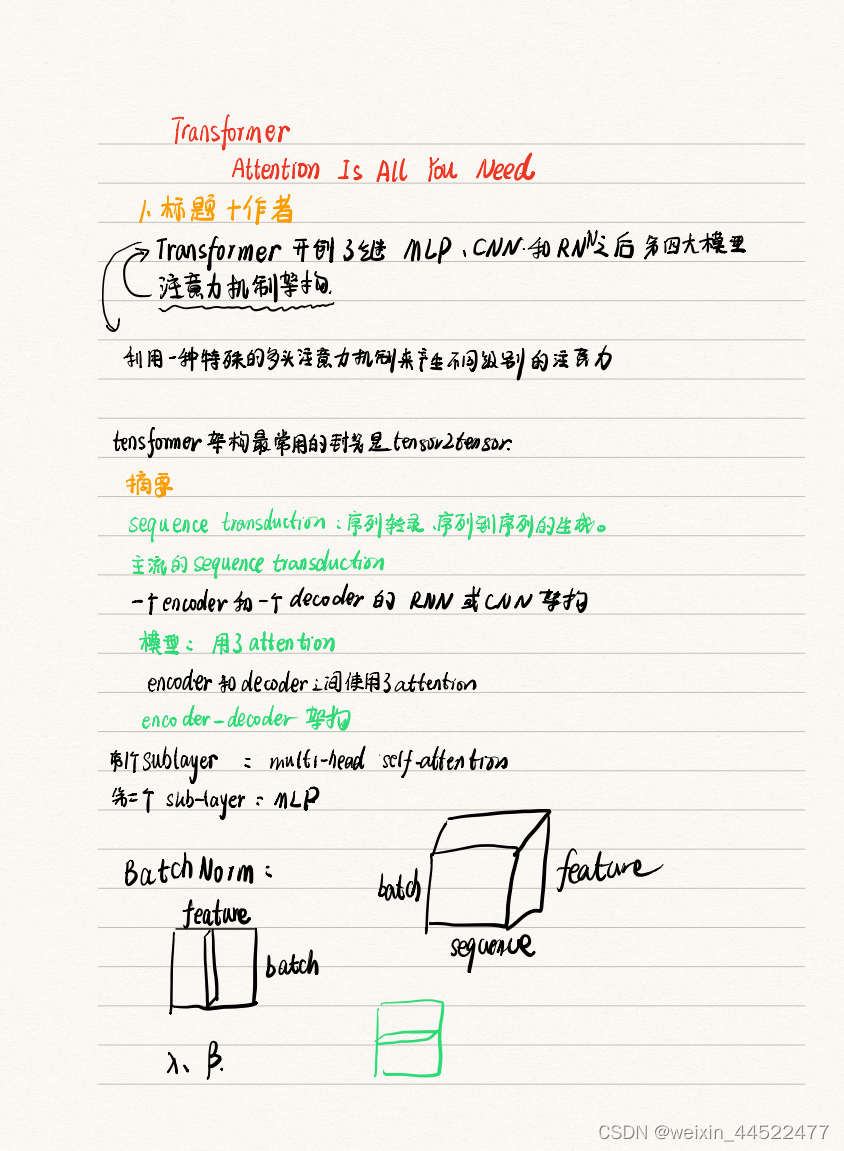 Transformer
Attention Is All You Need
1、标题+作者
Transformer 开创了继 MLP、CNN 和 RNN之后 第四大模型
注意力机制架构.
利用一种特殊的多头注意力机制来产生不同级别的注意力
tensformer 架构最常用的封装是tensor2tensor.
摘要
sequence transduction：序列转录、序列到序列的生成。
主流的 sequence transduction
一个encoder 和一个 decoder 的 RNN 或 CNN 架构
模型：用了attention
encoder 和 decoder 之间使用了attention
encoder-decoder 架构
第1个 sublayer ： multi-head self-attention
第二个 sub-layer：MLP
BatchNorm：
feature
batch
batch
feature
sequence
λ、β.
CSDN @weixin_44522477